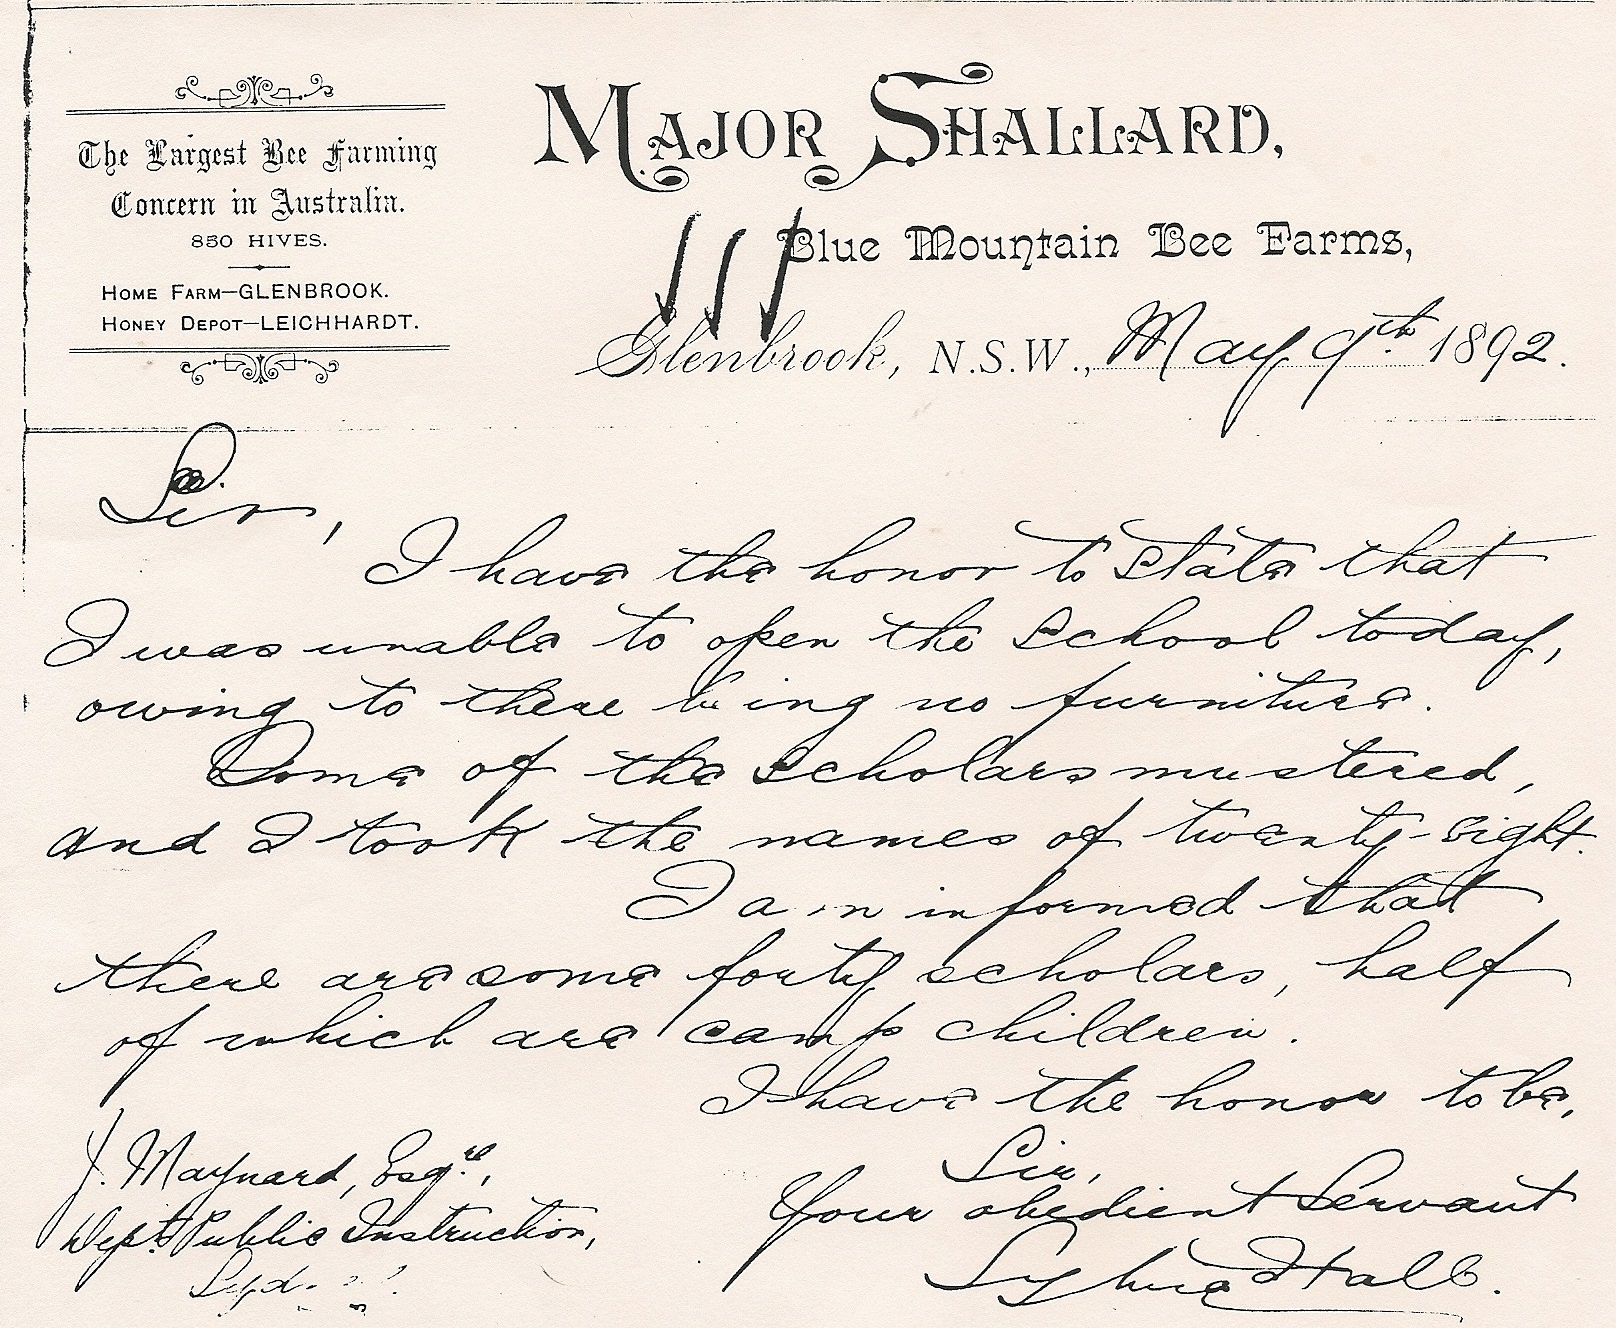 The Largest Bee Farming
Concern in Australia.
850 HIVES.
HOME FARM—GLENBROOK.
HONEY DEPOT—LEICHHARDT.
MAJOR SHALLARD,
Blue Mountain Bee Farms,
Glenbrook, N.S.W., May 9th 1892.
Sir,
I have the honor to state that
I was unable to open the School today,
owing to there being no furniture.
Some of the scholars mustered,
and I took the names of twenty-eight.
I am informed that
there are some forty scholars, half
of which are camp children.
I have the honor to be,
Sir,
Your obedient Servant
Sylvia Hall.
J. Maynard, Esqre,
Dept. Public Instruction,